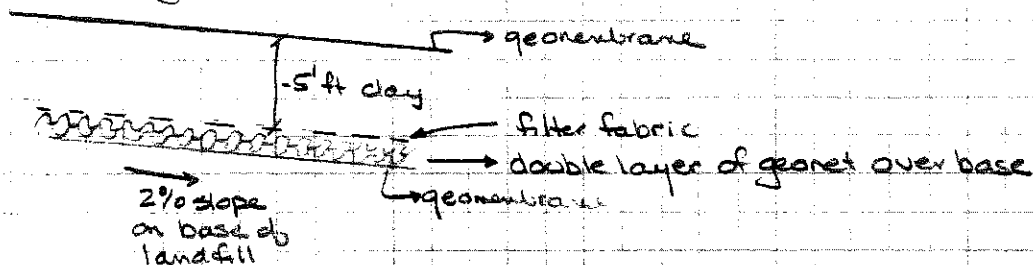 geomembrane
-5' ft clay
filter fabric
double layer of geonet over base
geomembrane
2% slope
on base of
landfill